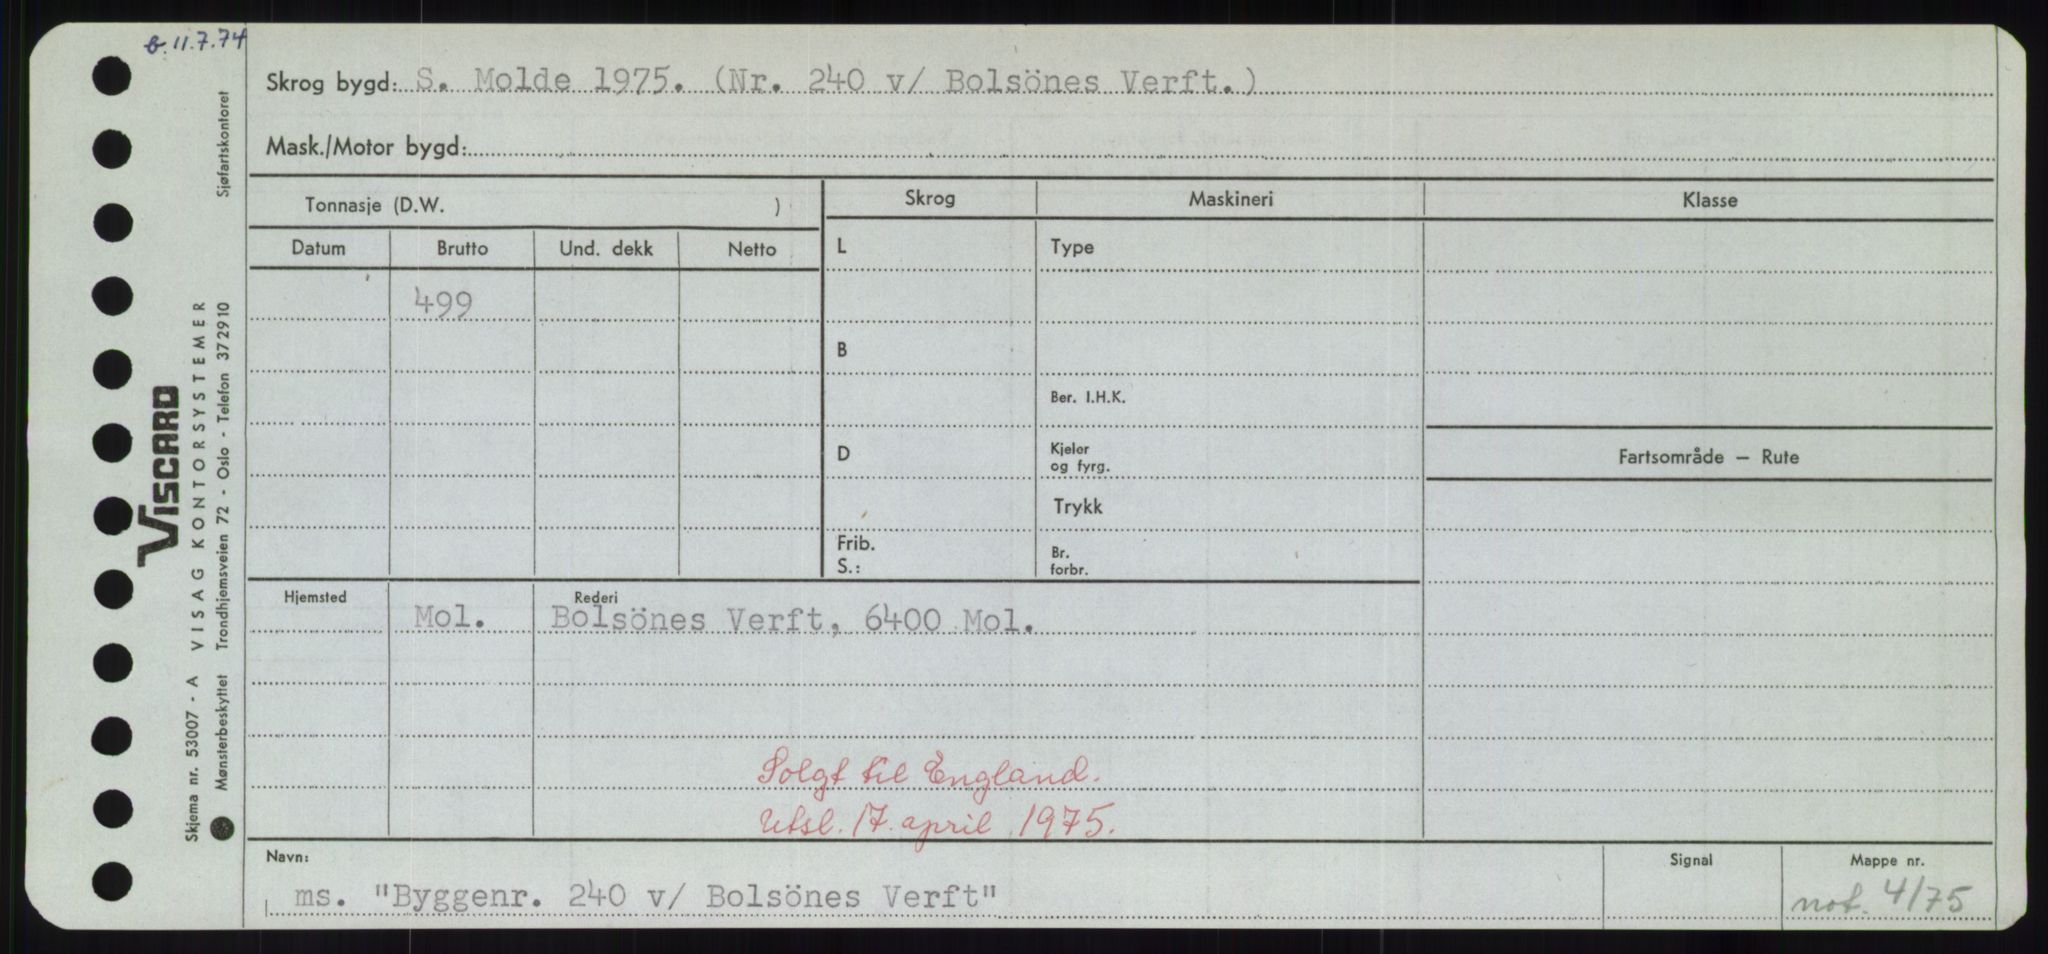 b. 11.7.74
Skrog bygd: S. Molde 1975. (Nr. 240 v/ Bolsönes Verft.)
Mask./Motor bygd:
Tonnasje (D.W. )
Skrog Maskineri Klasse
Datum Brutto Und. dekk Netto
L Type
499
B
Ber. I.H.K.
D Kjeler og fyrg.
Fartsområde – Rute
Trykk
Frib. Br.
S.: forbr.
Hjemsted Rederi
Mol. Bolsönes Verft, 6400 Mol.
Solgt til England.
Utsl. 17. april 1975.
Navn: Signal Mappe nr.
ms. "Byggenr. 240 v/ Bolsönes Verft" not. 4/75
VISCARD
Skjema nr. 53007 - A VISAG KONTORSYSTEMER
Mønsterbeskyttet Trondhjemsveien 72 - Oslo - Telefon 372910 Sjøfartskontoret